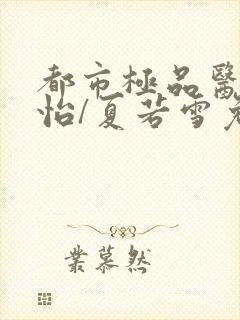 都市極品醫
怡/夏若雪
業慕然